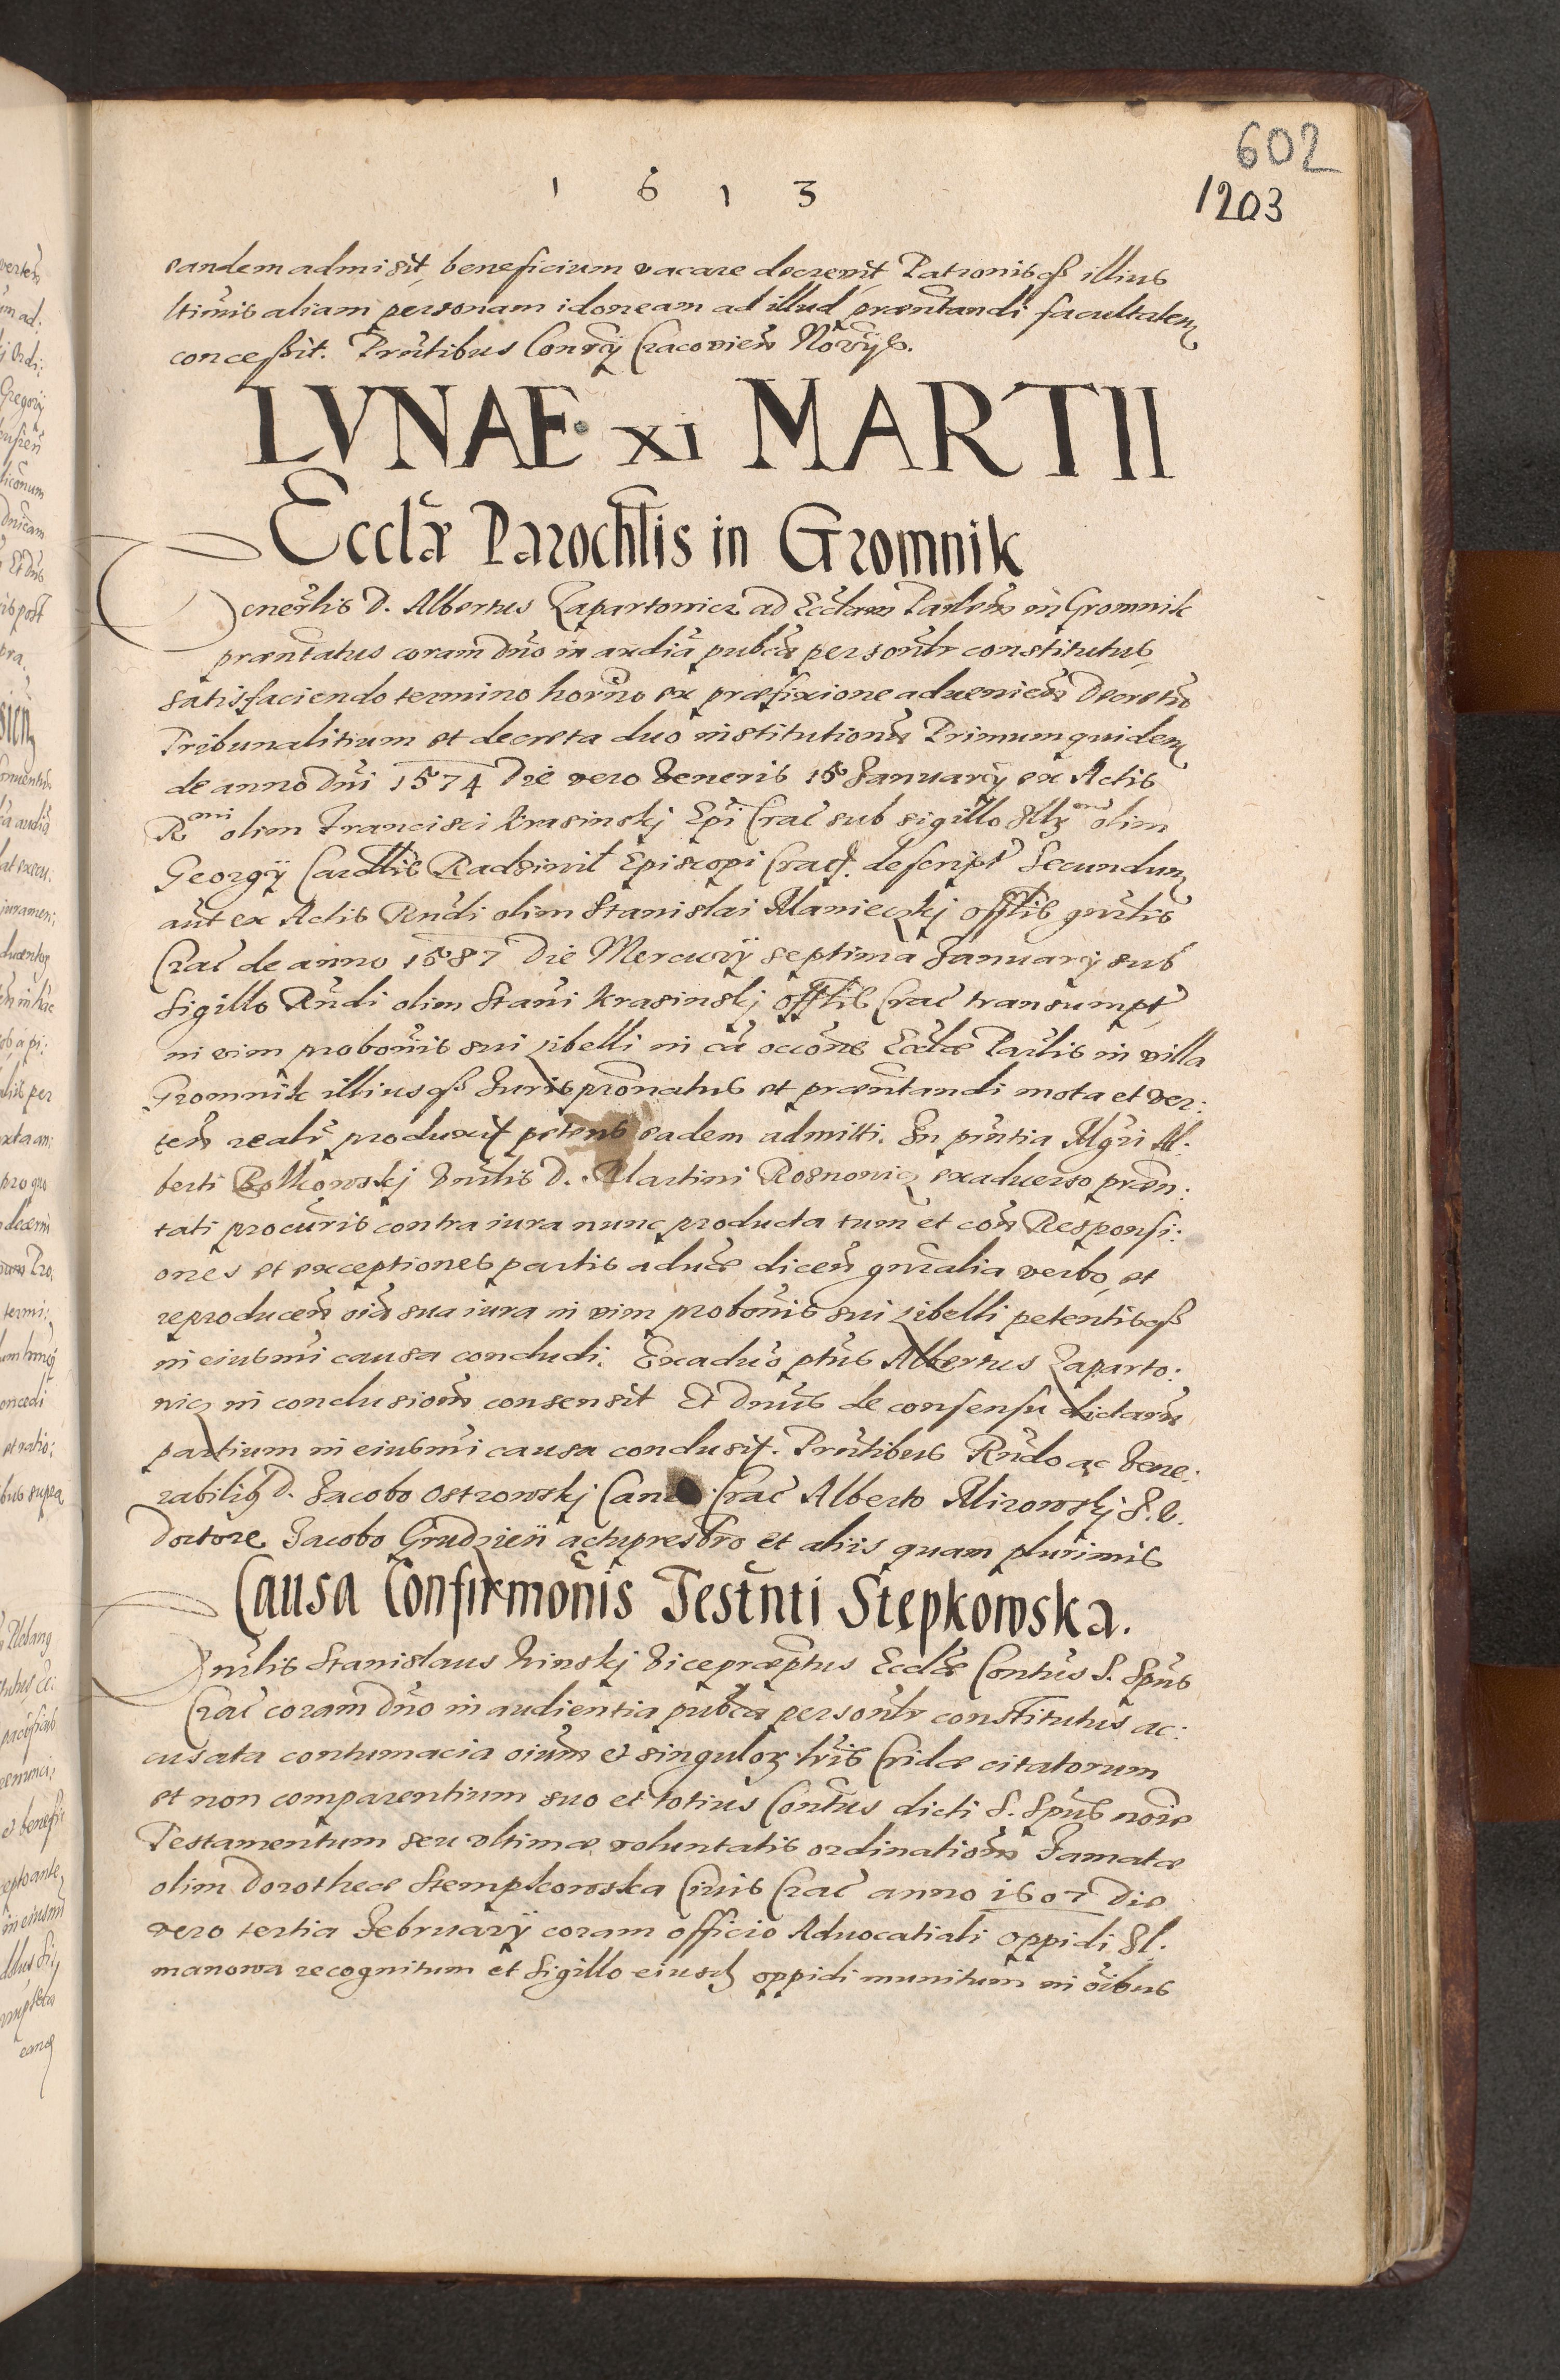 602
1 6 1 3
1203
eandem admisit, beneficium vacare decrevit Patronisq3 illius
ltimis aliam personam idoneam ad illud praentandi facultatem
conceßit. Prntibus Consry Cracovien Norijs.
LVNAE XI MARTII
Ecclae Parochlis in Gromnik
Venerlis D. Albertus Zapartowicz ad Ecclam Parlem in Gromnik
praentatus coram Dno in audia publca personlr constitutus
satisfaciendo termino horno ex praefixione adueniem Decretum
Tribunalitium et decreta duo institutionum Primum quidem
de anno Dni 1574 Die vero Veneris 15 January ex Actis
Rmi olim Francisci Krasinskj Epi Crac sub sigillo Illmi olim
Georgÿ Cardlis Radziwil Episcopi Crac. descript Secundum
aut ex Actis Rndi olim Stanislai Manieczkj offlis gnrlis
Crac de anno 1587 Die Mercurÿ septima January sub
Sigillo Rndi olim Stani Krasinskj offlis Crac transumpt
in vim probonis sui libelli in ca occone Ecclae Parlis in villa
Gromnik illiusq3 Iuris pronatus et praentandi mota et ver:
ten reali produxit petens eadem admitti. In pntia Mgri Al:
berti Bolkowskj Vnrlis D. Martini Rosnowicz exaduerso praen:
tati procuris contra iura nunc producta tum et con Responsi:
ones et exceptiones partis aduae dicen gnralia verbo, et
reproducen oia sua iura in vim probonis sui libelli petentisq3
in eiusmi causa concludi. Exaduo ptus Albertus Zaparto:
wicz in conclusionem consensit Et Dnus de consensu dictarum
partium in eiusmi causa conclusit. Prntibus Rndo ac Vene:
rabilib3 D. Jacobo Ostrowskj Can Crac Alberto Mirowskj I. V.
Doctore Jacobo Grudzien actupresbro et alijs quam plurimis
Causa Confirmonis Testnti Stepkowska.
Vnrlis Stanislaus Kinskj Vicepraeptus Ecclae Contus S. Spus
Crac coram Dno in audientia publca personlr constitutus ac:
cusata contumacia oium et singulor lris Cridae citatorum
et non comparentium suo et totius Contus dicti S. Spus noie
Testamentum seu vltimae voluntatis ordinationem Famatae
olim Dorotheae Stempkowska Civis Crac anno 1607 Die
vero tertia February coram officio Aduocatiali oppidi Il:
manowa recognitum et Sigillo eiusd oppidi munitum in oibus